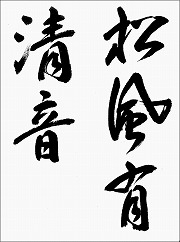 松風有
清音